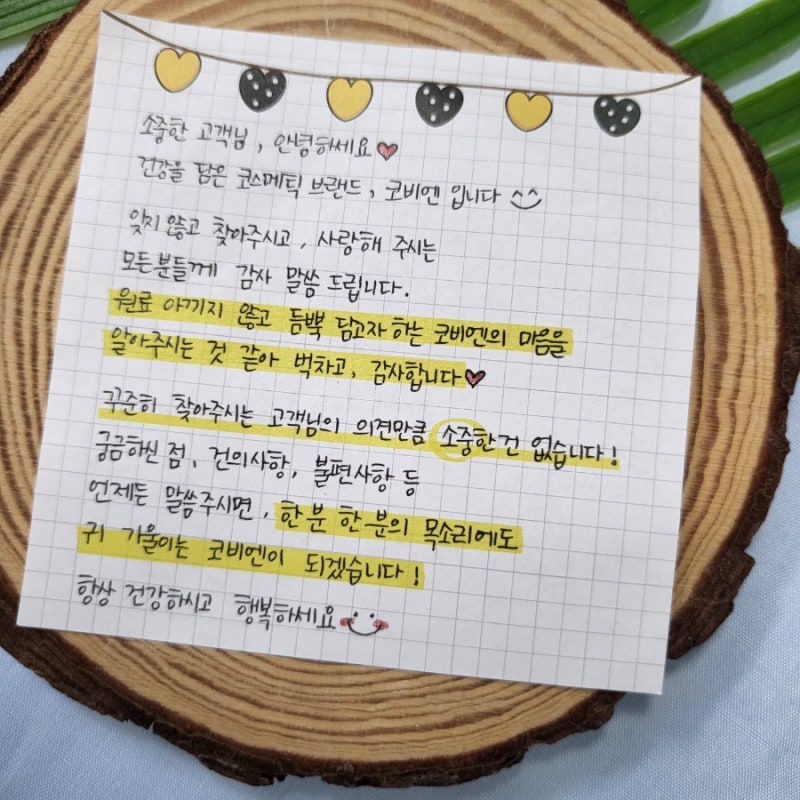 소중한 고객님, 안녕하세요
건강을 담은 코스메틱 브랜드, 코비엔 입니다 ^^
잊지 않고 찾아주시고, 사랑해 주시는
모든분들께 감사 말씀 드립니다.
원료 아끼지 않고 듬뿍 담고자 하는 코비엔의 마음을
알아주시는 것 같아 벅차고, 감사합니다
꾸준히 찾아주시는 고객님의 의견만큼 소중한건 없습니다!
궁금하신 점, 건의사항, 불편사항 등
언제든 말씀주시면, 한 분 한 분의 목소리에도
귀 기울이는 코비엔이 되겠습니다!
항상 건강하시고 행복하세요